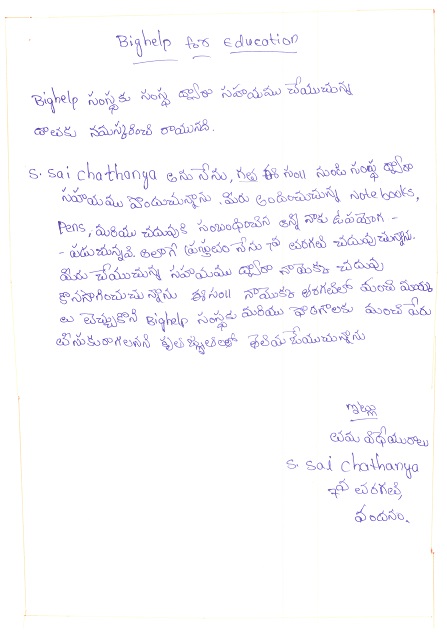 Bighelp for Education
Bighelp సంస్థకు సంస్థ ద్వారా సహాయము చేయుచున్న
దాతకు నమస్కరించి రాయునది.
S. Sai chathanya అను నేను, గత ఈ సం॥ నుండి సంస్థ ద్వారా
సహాయము పొందుచున్నాను. మీరు అందించుచున్న Note books,
Pens, మరియు చదువుకి సంబంధించిన అన్ని నాకు ఉపయోగ -
- పడుచున్నవి. అలాగే ప్రస్తుతం నేను 7వ తరగతి చదువుచున్నాను.
మీరు చేయుచున్న సహాయము ద్వారా నాయొక్క చదువు
కొనసాగించుచున్నాను ఈ సం॥ నాయొక్క తరగతిలో మంచి మార్కు
లు తెచ్చుకొని Bighelp సంస్థకు మరియు మంచి పేరు
తీసుకురాగలనని తెలియజేయుచున్నాను
ఇట్లు
తమ విధేయురాలు
S. Sai chathanya
7వ తరగతి,
వందనం.